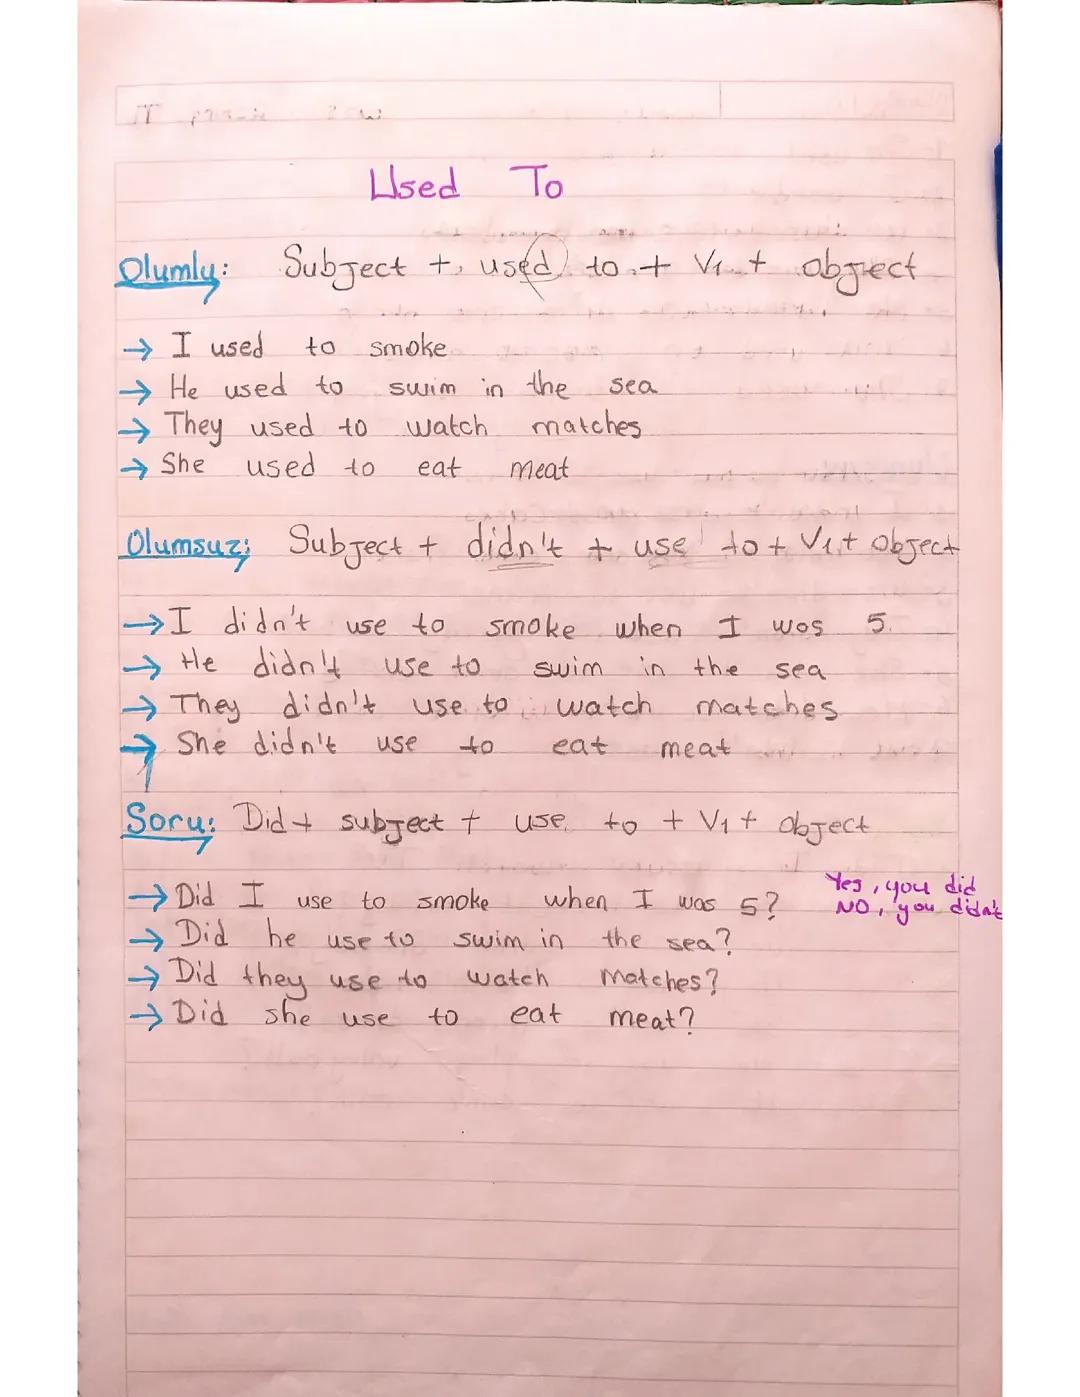 Used To
Olumly: Subject + used to + V1 + object
→ I used to smoke
→ He used to swim in the sea
→ They used to watch matches
→ She used to eat meat
Olumsuz: Subject + didn't + use to + V1 + object
→ I didn't use to smoke when I was 5.
→ He didn't use to swim in the sea
→ They didn't use to watch matches
→ She didn't use to eat meat
Soru: Did + subject + use to + V1 + object
→ Did I use to smoke when I was 5? Yes, you did
NO, you didn't
→ Did he use to swim in the sea?
→ Did they use to watch matches?
→ Did she use to eat meat?